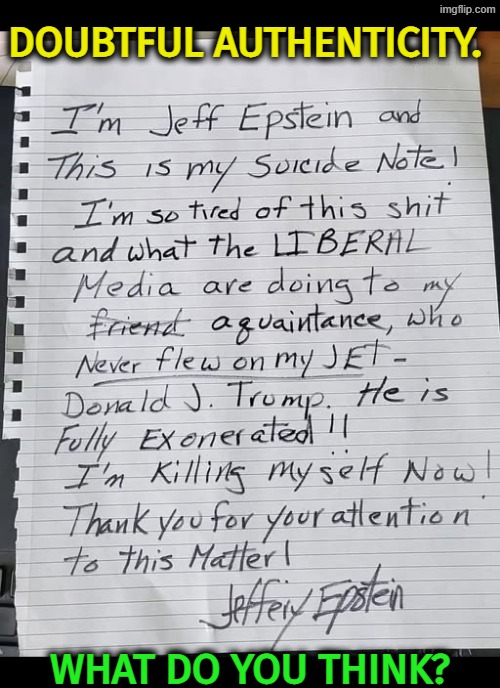 imgflip.com
DOUBTFUL AUTHENTICITY.
I'm Jeff Epstein and
This is my Suicide Note!
I'm so tired of this shit
and what the LIBERAL
Media are doing to my
friend aquaintance, who
Never flew on my JET-
Donald J. Trump. He is
Fully Exonerated!!
I'm Killing myself Now!
Thank you for your attention
to this Matter!
Jeffery Epstein
WHAT DO YOU THINK?